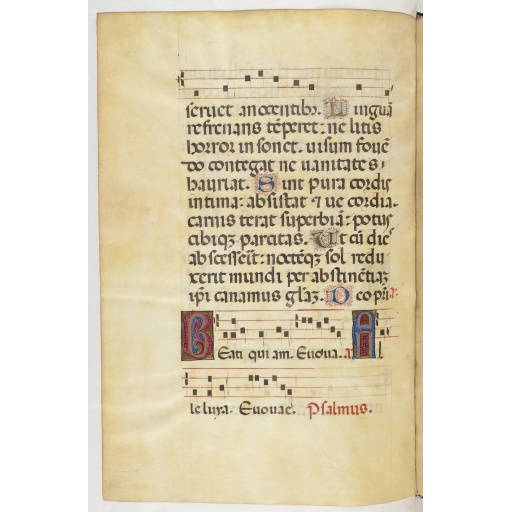 seruet anocentibꝫ. Linguā
refrenans tēperet: ne litis
horror insonet. uisum fouē
do contegat ne uanitates
hauriat. Sint pura cordis
intima: absistat ⁊ ue cordia.
carnis terat superbiā: potus
cibiqꝫ parcitas. Ut cū dies
abscesserit: noctēqꝫ sol redu
xerit mundi per abstinētiaꝫ
ip̄i canamus gl̄aꝫ. Deo pr̄i
Beati qui am. Euoua. a. Al
leluya. Euouae. Psalmus.